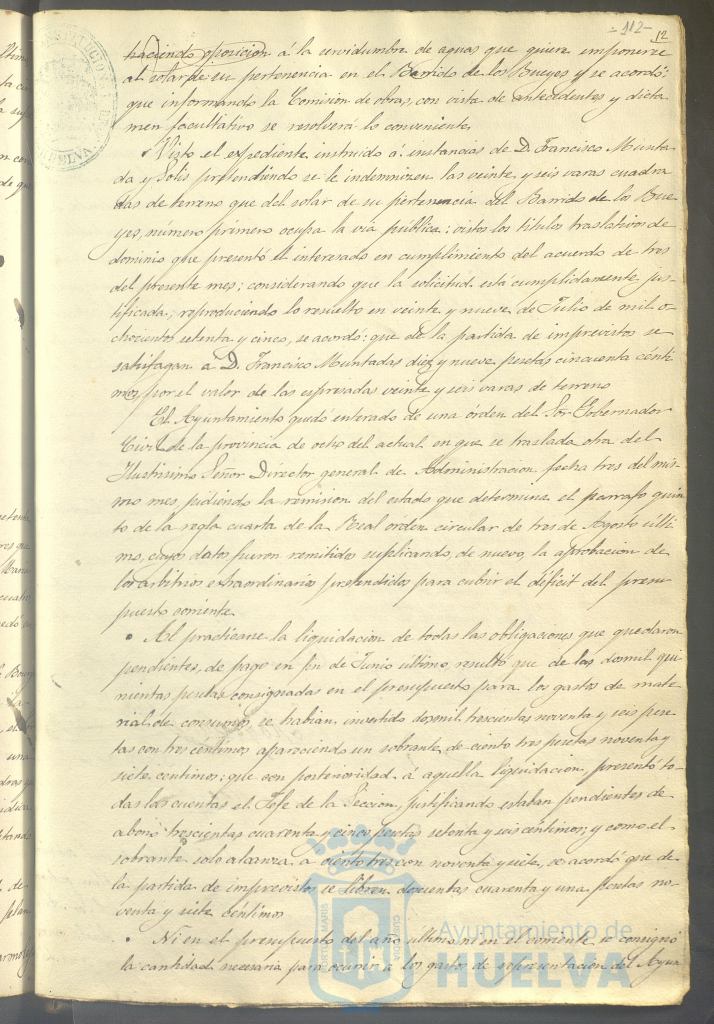 = 112 =
12
haciendo oposicion á la servidumbre de aguas que quiere imponerse
al solar de su pertenencia en el Barrido de los Bueyes y se acordó:
que informando la Comision de obras, con vista de antecedentes y dicta
men facultativo se resolverá lo conveniente.
Visto el expediente instruido á instancias de D. Francisco Munta
da y Solis pretendiendo se le indemnizen las veinte y seis varas cuadra
das de terreno que del solar de su pertenencia del Barrido de los Bue
yes, número primero ocupa la via pública: vistos los titulos traslativos de
dominio que presentó el interesado en cumplimiento del acuerdo de tres
del presente mes; considerando que la solicitud está cumplidamente jus-
tificada; reproduciendo lo resuelto en veinte y nueve de Julio de mil o-
chocientos setenta y cinco, se acordó: que de la partida de imprevistos se
satisfagan a D. Francisco Muntadas diez y nueve pesetas cincuenta cénti
mos por el valor de las espresadas veinte y seis varas de terreno
El Ayuntamiento quedó enterado de una orden del Sor Gobernador
Civil de la provincia de ocho del actual en que se traslada otra del
Ilustrisimo Señor Director general de Administracion fecha tres del mis
mo mes, pidiendo la remision del estado que determina el parrafo quin
to de la regla cuarta de la Real orden circular de tres de Agosto ulti
mo, cuyos datos fueron remitidos suplicando, de nuevo, la aprobacion de
los arbitrios extraordinarios pretendidos para cubrir el déficit del presu
puesto corriente.
Al practicarse la liquidacion de todas las obligaciones que quedaron
pendientes de pago en fin de Junio ultimo, resultó que de las dosmil qui
nientas pesetas consignadas en el presupuesto para los gastos de mate
rial de consumos se habian invertido dosmil trescientas noventa y seis pese
tas con tres centimos apareciendo un sobrante de ciento tres pesetas noventa y
siete centimos; que con posterioridad á aquella liquidacion, presentó to-
das las cuentas el Jefe de la Seccion, justificando estaban pendientes de
abono trescientas cuarenta y cinco pesetas setenta y seis céntimos; y como el
sobrante solo alcanza a ciento tres con noventa y siete, se acordó que de
la partida de imprevistos se libren doscientas cuarenta y una pesetas no-
venta y siete céntimos
Ni en el presupuesto del año ultimo ni en el corriente se consignó
la cantidad necesaria para ocurrir a los gastos de representacion del Ayun
Ayuntamiento de
HUELVA